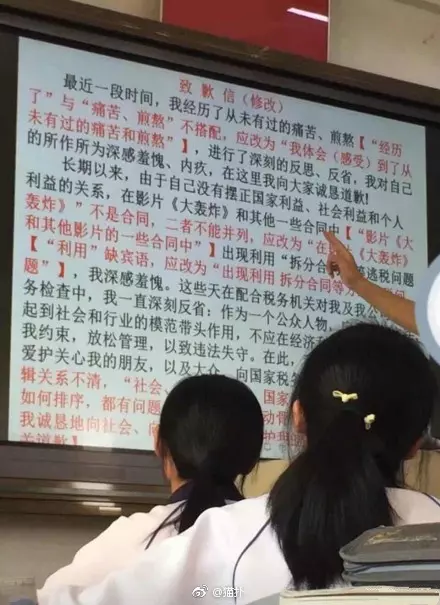 致歉信(修改)
最近一段时间，我经历了从未有过的痛苦、煎熬【“经历
了”与“痛苦、煎熬”不搭配，应改为“我体会(感受)到了从
未有过的痛苦和煎熬”】，进行了深刻的反思、反省，我对自己
的所作所为深感羞愧、内疚，在这里我向大家诚恳道歉！
长期以来，由于自己没有摆正国家利益、社会利益和个人
利益的关系，在影片《大轰炸》和其他一些合同中【“影片《大
轰炸》”不是合同，二者不能并列，应改为“在影片《大轰炸》
和其他影片的一些合同中”】出现利用“拆分合同”等逃税问题
【“利用”缺宾语，应改为“出现利用 拆分合同等方
题”】，我深感羞愧。这些天在配合税务机关对我及我公
务检查中，我一直深刻反省：作为一个公众人物，
起到社会和行业的模范带头作用，不应在经济
我约束，放松管理，以致违法失守。在此，
爱护关心我的朋友，以及大众，向国家税务
辑关系不清，“社会、 国家
如何排序，都有问题
我诚恳地向社会、向
关道歉】
@猫扑